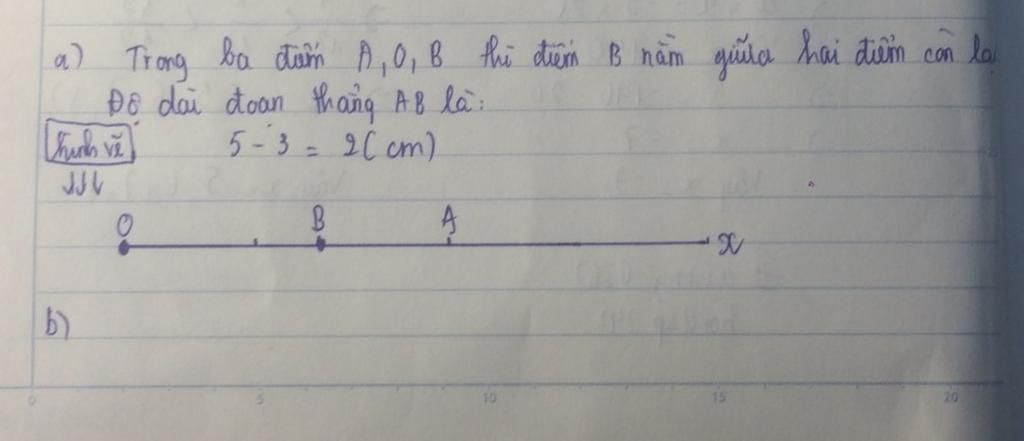 a) Trong ba điểm A, O, B thì điểm B nằm giữa hai điểm còn lại
Độ dài đoạn thẳng AB là:
Hình vẽ 5 - 3 = 2 (cm)
↓↓↓
O B A
x
b)
0 5 10 15 20